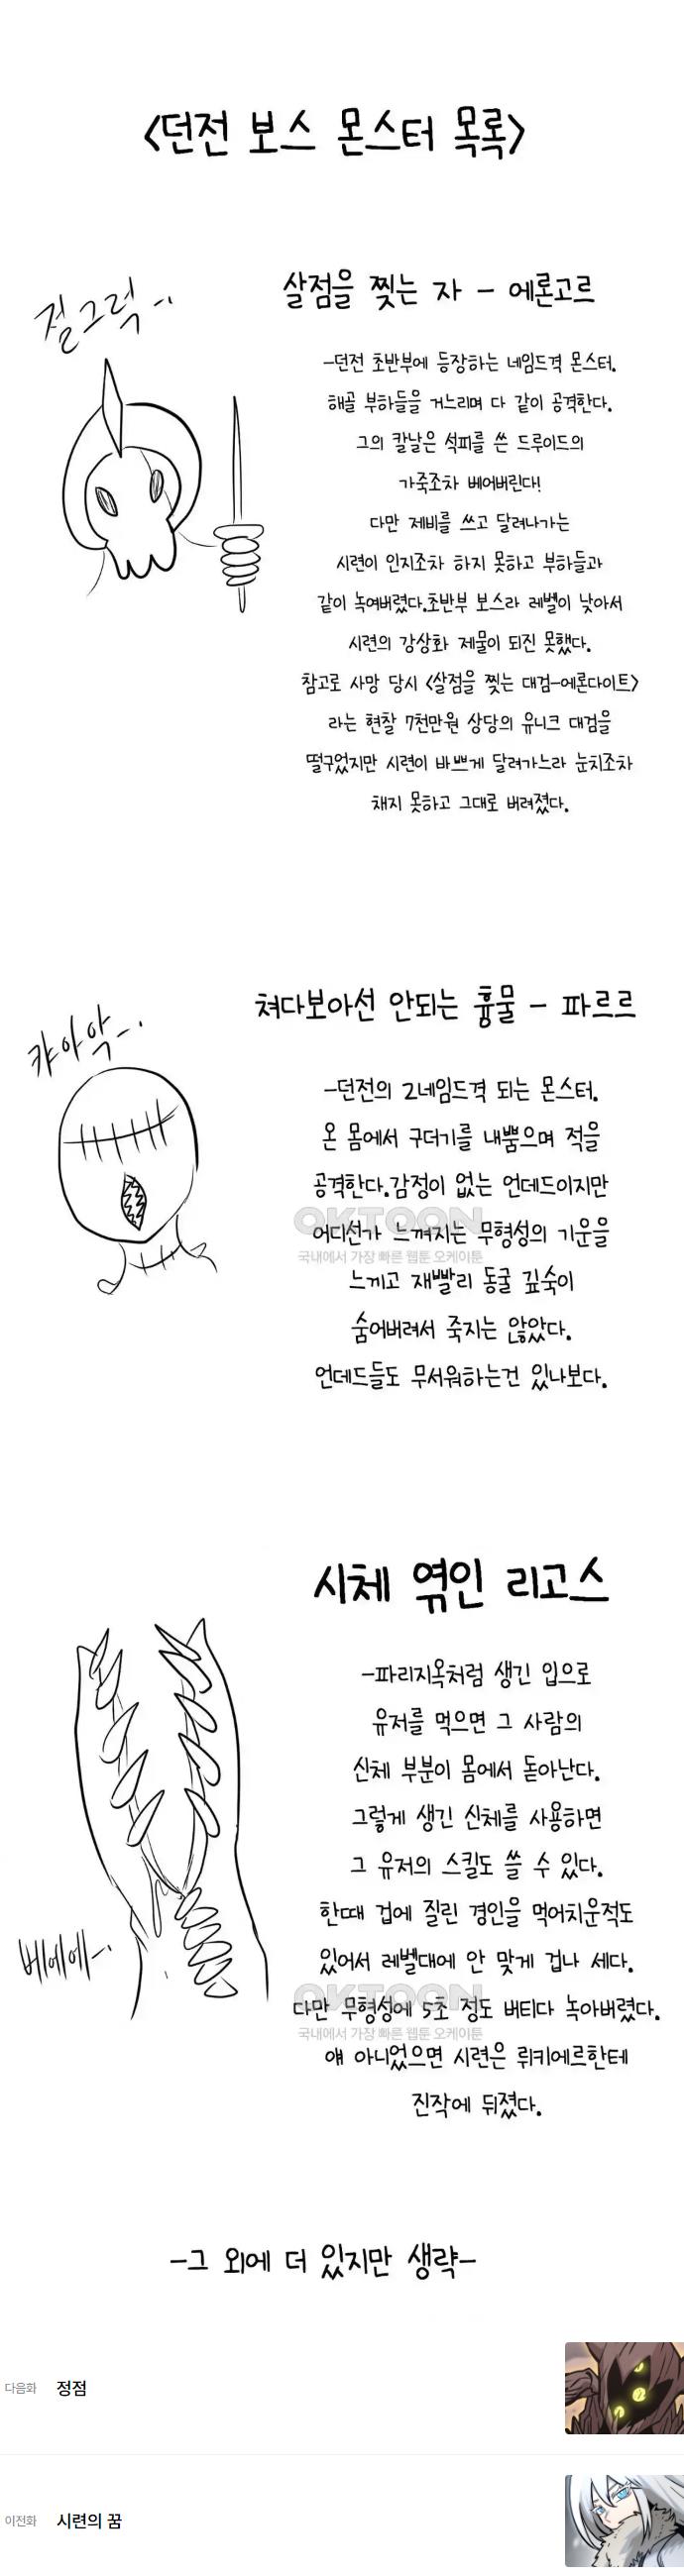 <던전 보스 몬스터 목록>
절그럭..
살점을 찢는 자 - 에론고르
-던전 초반부에 등장하는 네임드격 몬스터.
해골 부하들을 거느리며 다 같이 공격한다.
그의 칼날은 석피를 쓴 드루이드의
가죽조차 베어버린다!
다만 제비를 쓰고 달려나가는
시련이 인지조차 하지 못하고 부하들과
같이 녹여버렸다.초반부 보스라 레벨이 낮아서
시련의 강상화 제물이 되진 못했다.
참고로 사망 당시 <살점을 찢는 대검-에론다이트>
라는 현찰 7천만원 상당의 유니크 대검을
떨구었지만 시련이 바쁘게 달려가느라 눈치조차
채지 못하고 그대로 버려졌다.
쳐다보아선 안되는 흉물 - 파르르
캬아악-.
-던전의 2네임드격 되는 몬스터.
온 몸에서 구더기를 내뿜으며 적을
공격한다.감정이 없는 언데드이지만
OKTOON
어디선가 느껴지는 무형성의 기운을
국내에서 가장 빠른 웹툰 오케이툰
느끼고 재빨리 동굴 깊숙이
숨어버려서 죽지는 않았다.
언데드들도 무서워하는건 있나보다.
시체 엮인 리고스
-파리지옥처럼 생긴 입으로
유저를 먹으면 그 사람의
신체 부분이 몸에서 돋아난다.
그렇게 생긴 신체를 사용하면
그 유저의 스킬도 쓸 수 있다.
한때 겁에 질린 경인을 먹어치운적도
베에에-.
있어서 레벨대에 안 맞게 겁나 세다.
OKTOON
다만 무형성에 5초 정도 버티다 녹아버렸다.
국내에서 가장 빠른 웹툰 오케이툰
얘 아니었으면 시련은 뤼키에르한테
진작에 뒤졌다.
-그 외에 더 있지만 생략-
다음화 정점
이전화 시련의 꿈